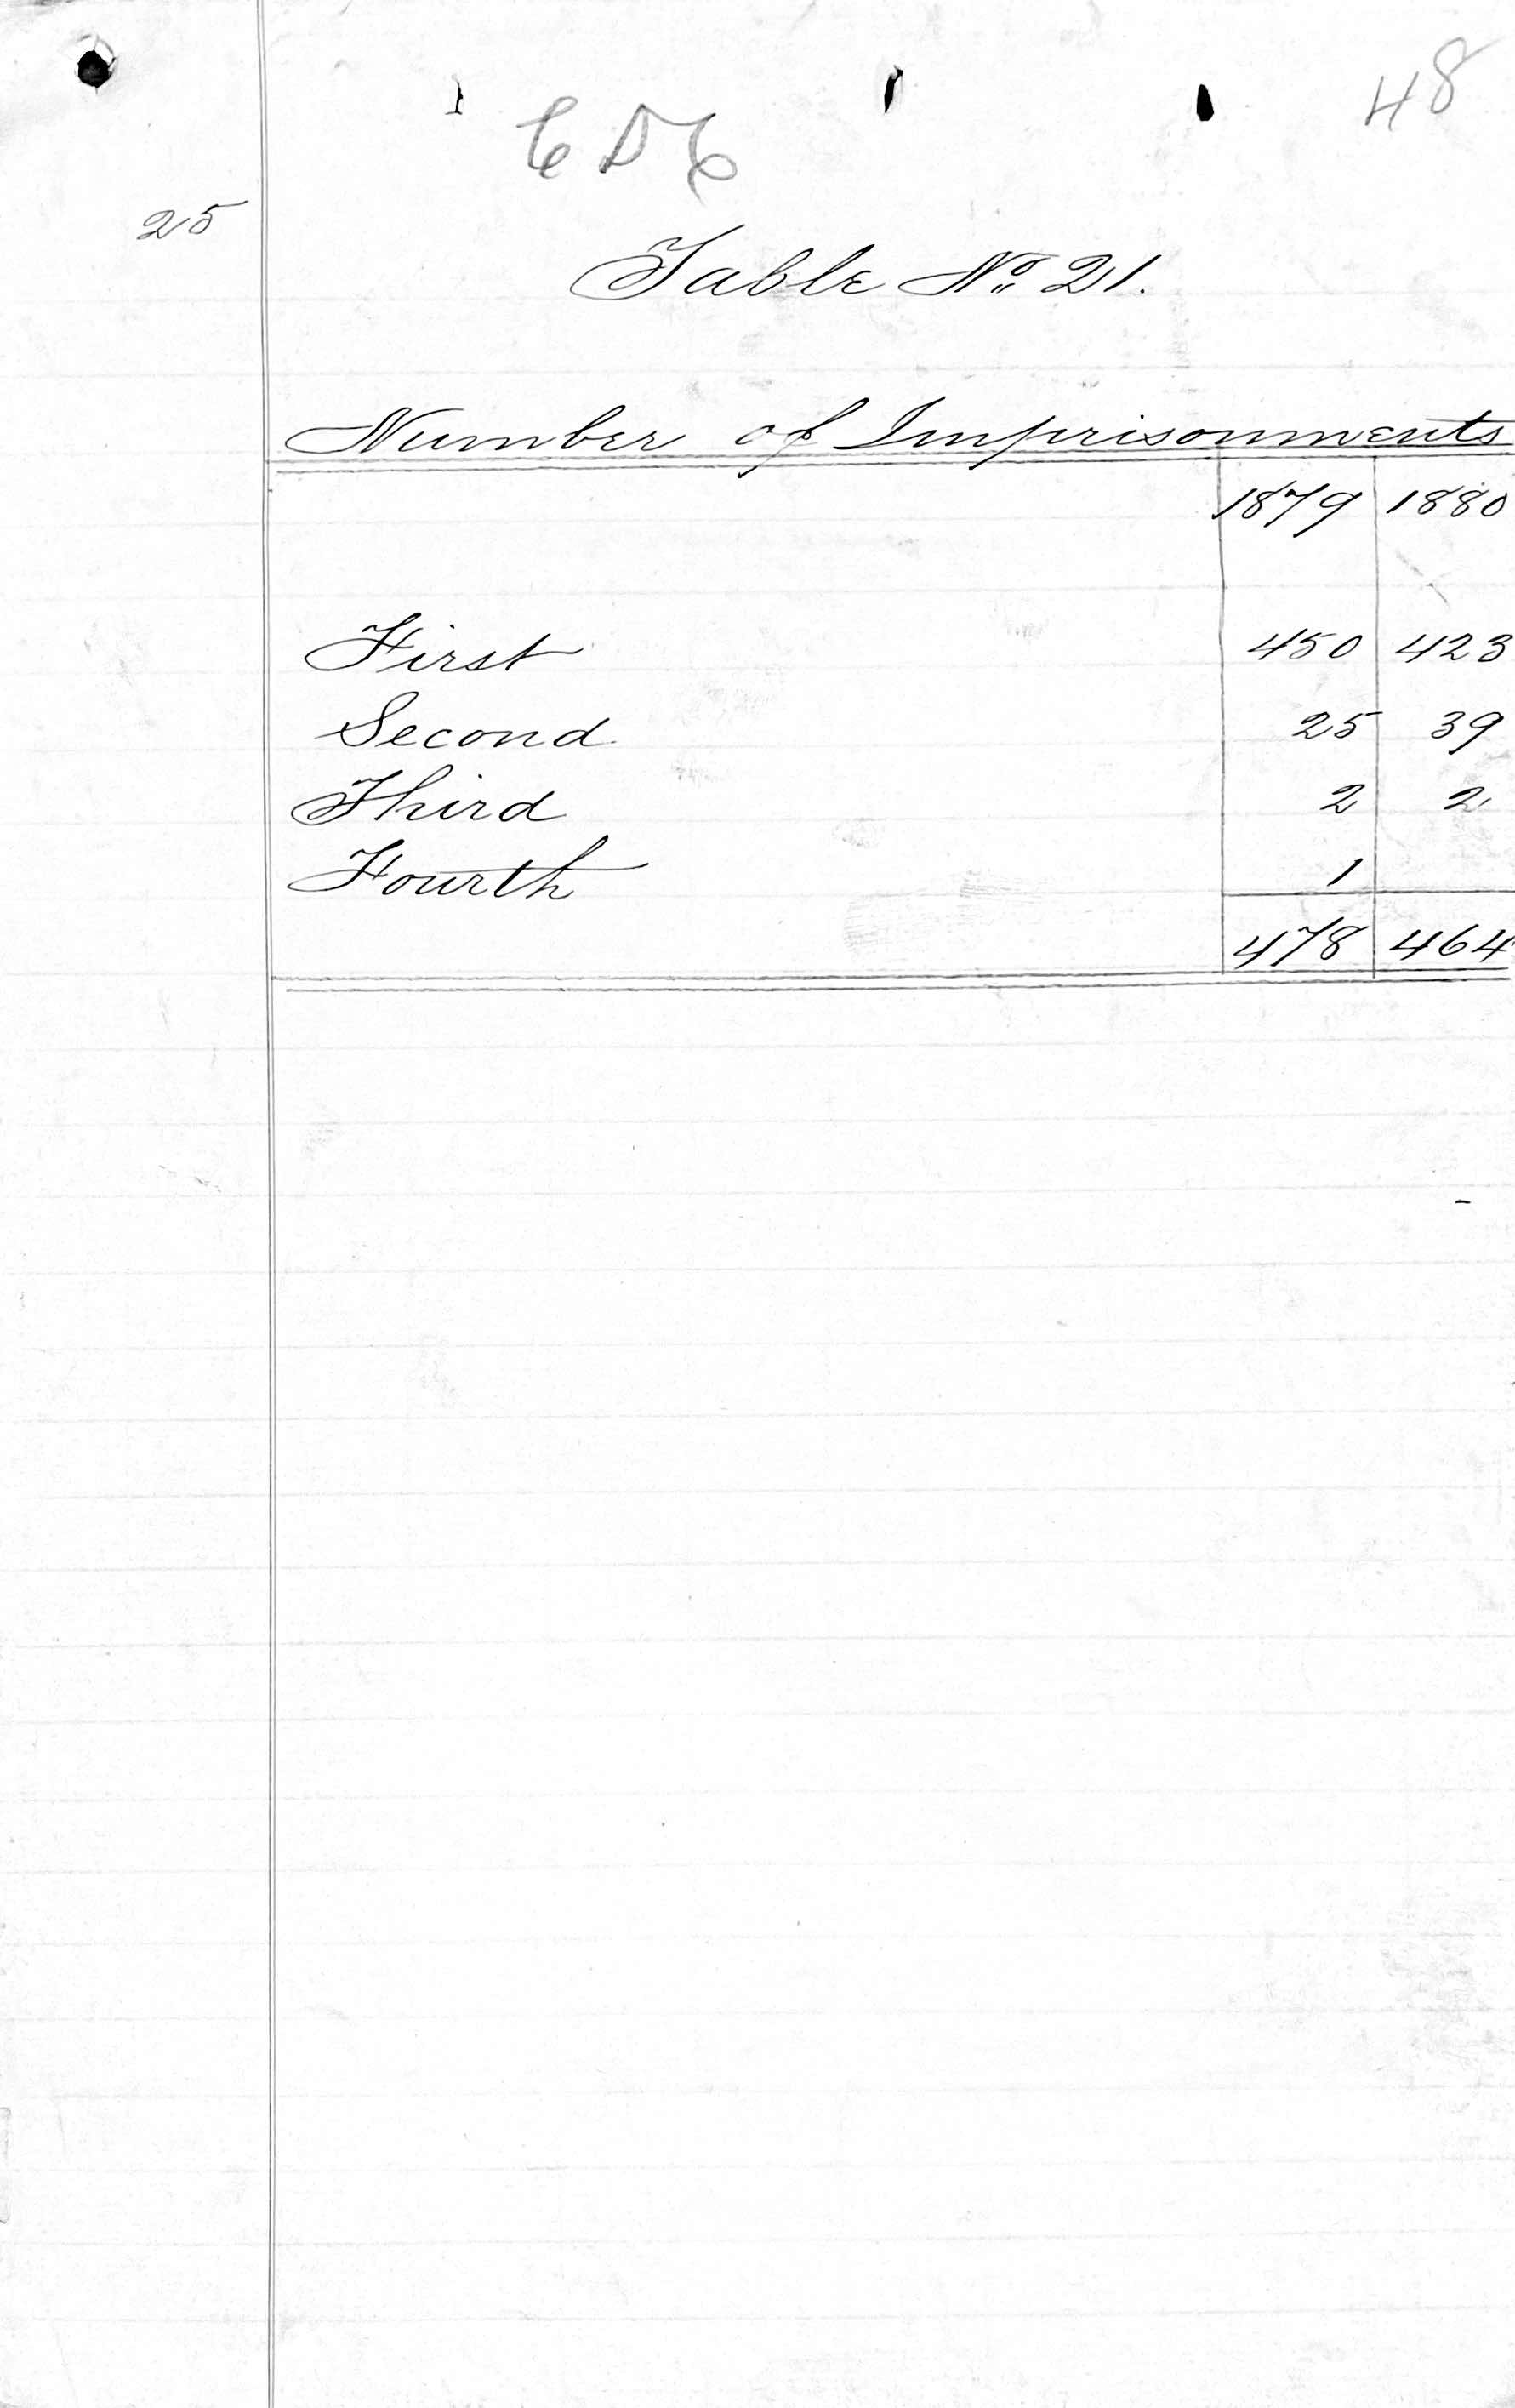 48
25
Table No. 21.
Number of Imprisonments
1879 1880
First 450 423
Second 25 39
Third 2 2
Fourth 1
478 464